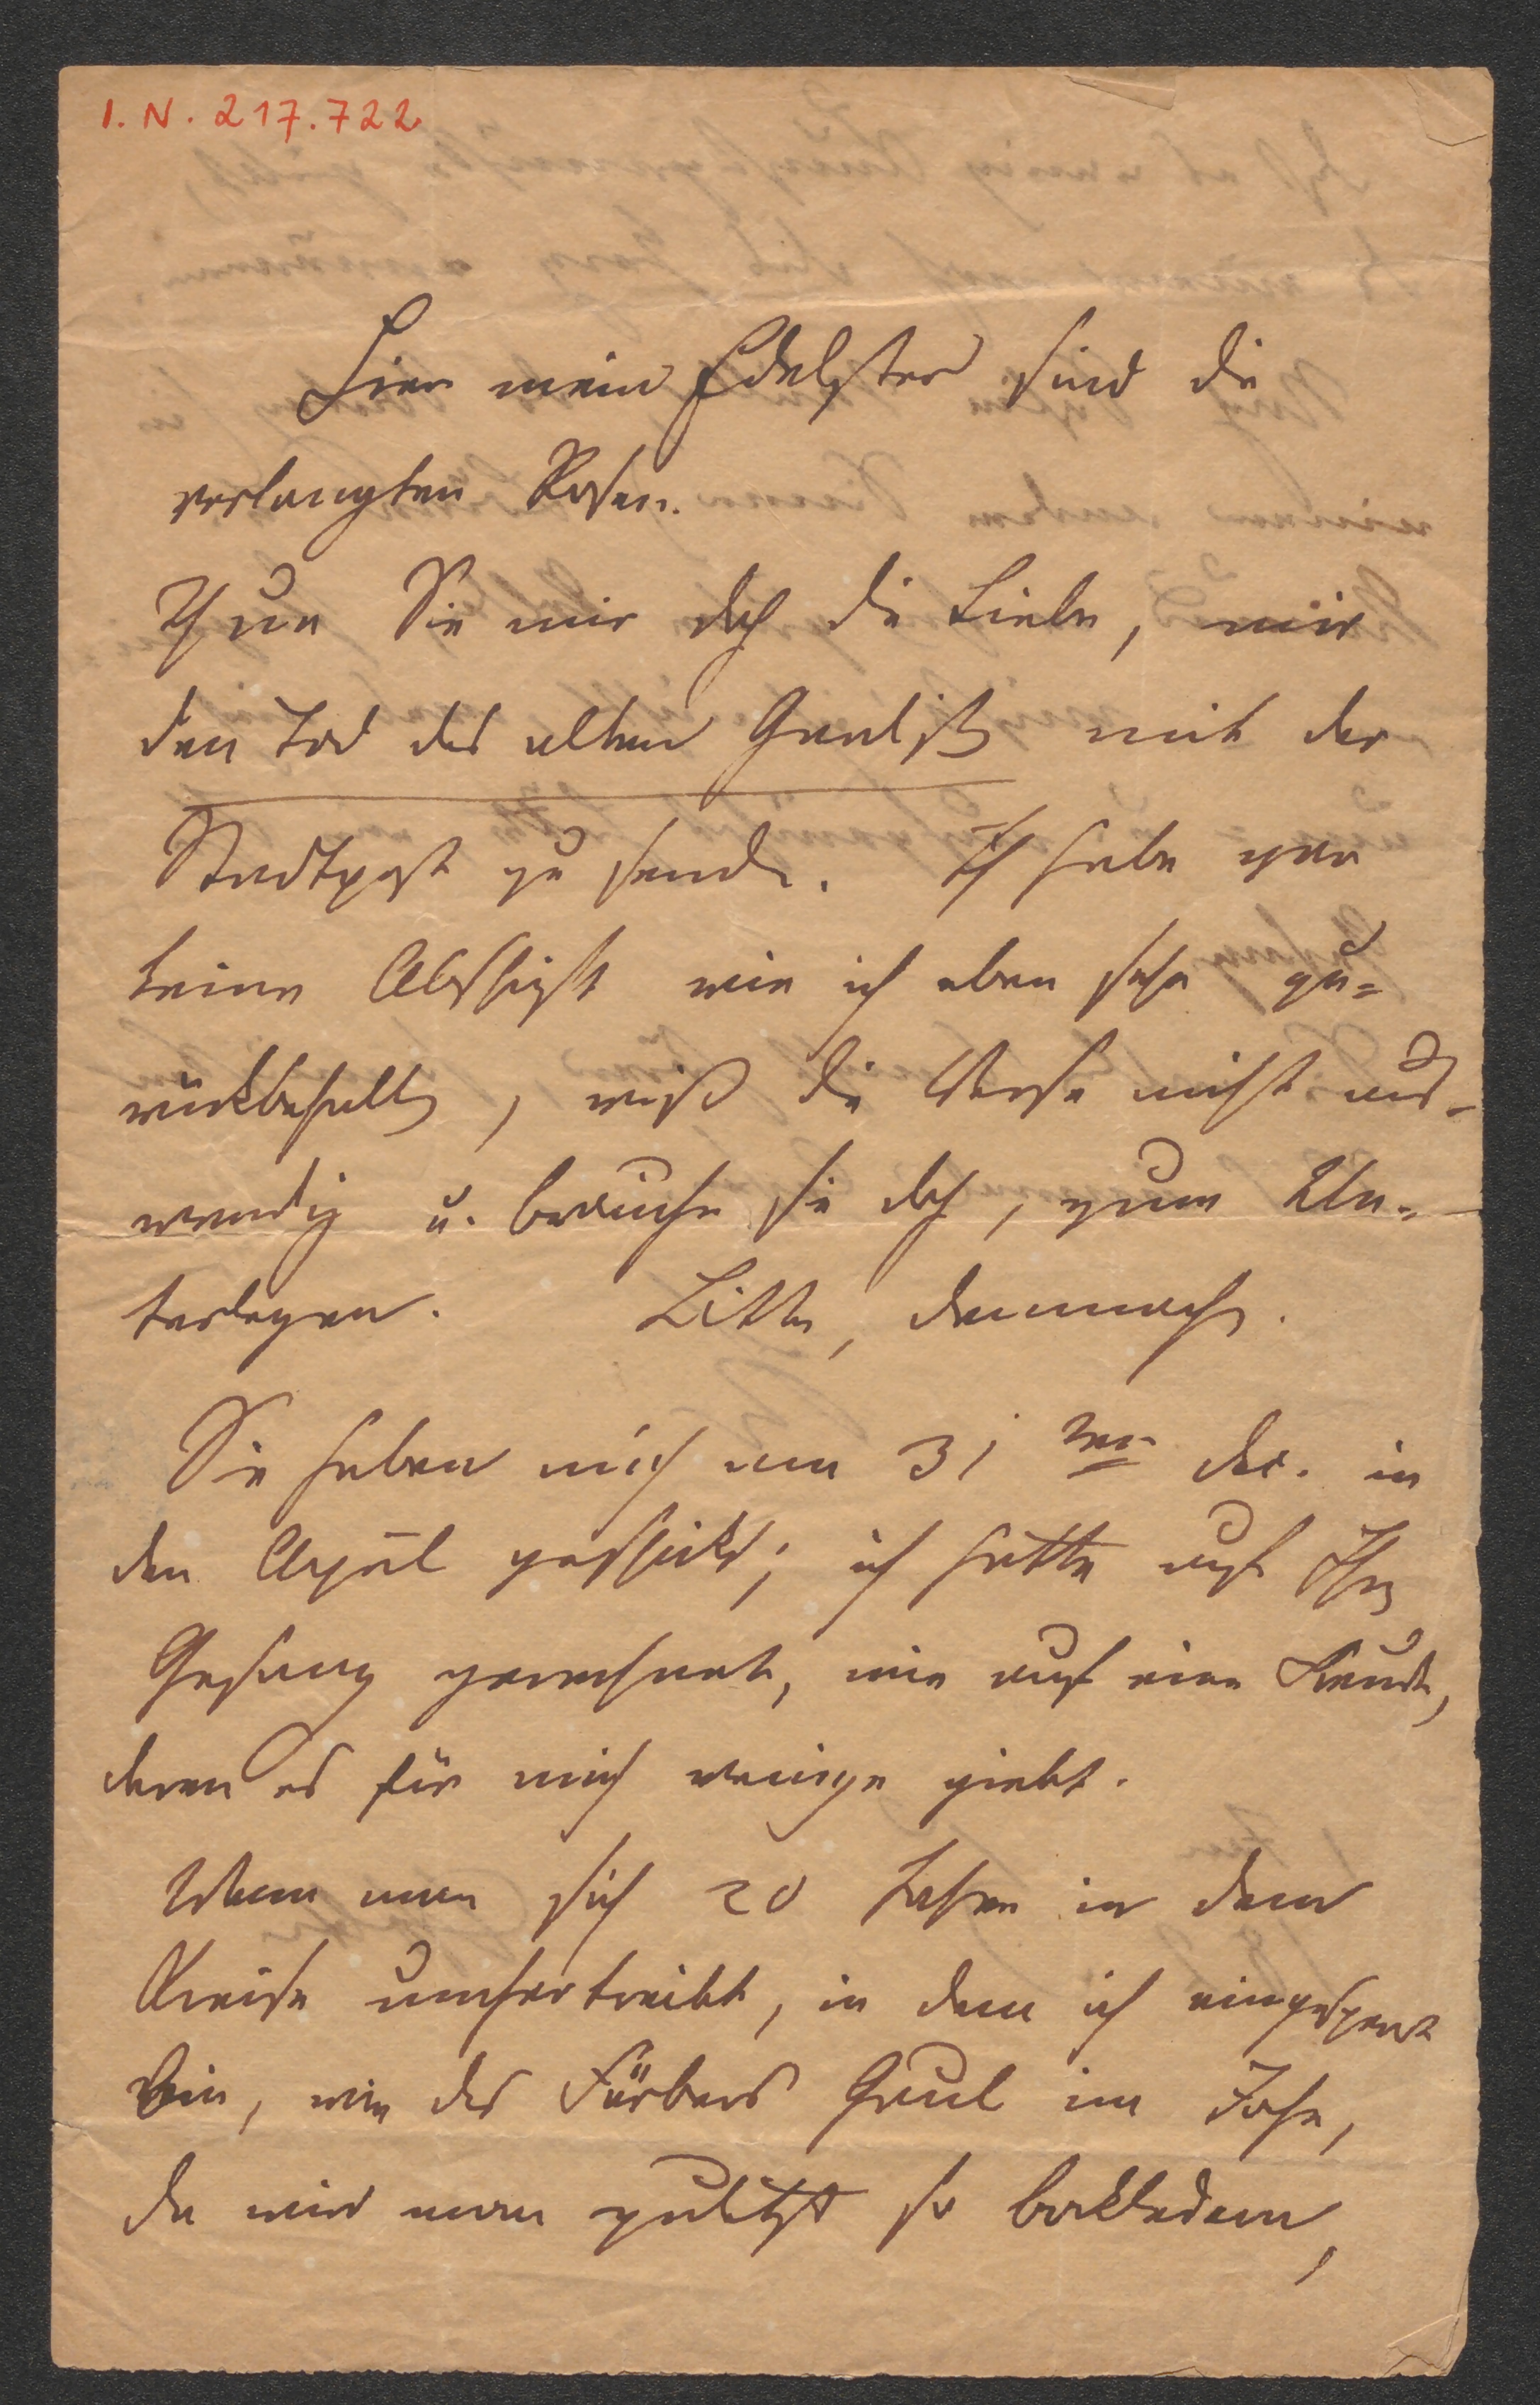 I. N. 217.722
Hier mein Edelster sind die
verlangten Rosen.
Thun Sie mir doch die Liebe, mir
den Tod des alten mit der
Stadtpost zu senden. Ich habe gar
keine Abschrift wie ich eben sehe zu=
rückbehalten, weiß die Verse nicht aus-
wendig u. brauche sie doch, zum Un=
terlegen. Bitte, demnach.
Sie haben mich am 31 ten Dec. in
den April geschickt; ich hatte auf Ihren
Gesang gerechnet, wie auf eine Freude,
deren es für mich wenige giebt.
Wenn man sich 20 Jahre in dem
Kreise umhertreibt, in dem ich eingesperrt
bin, wie des Färbers Gaul im Joche,
da wird man zuletzt so bockledern,